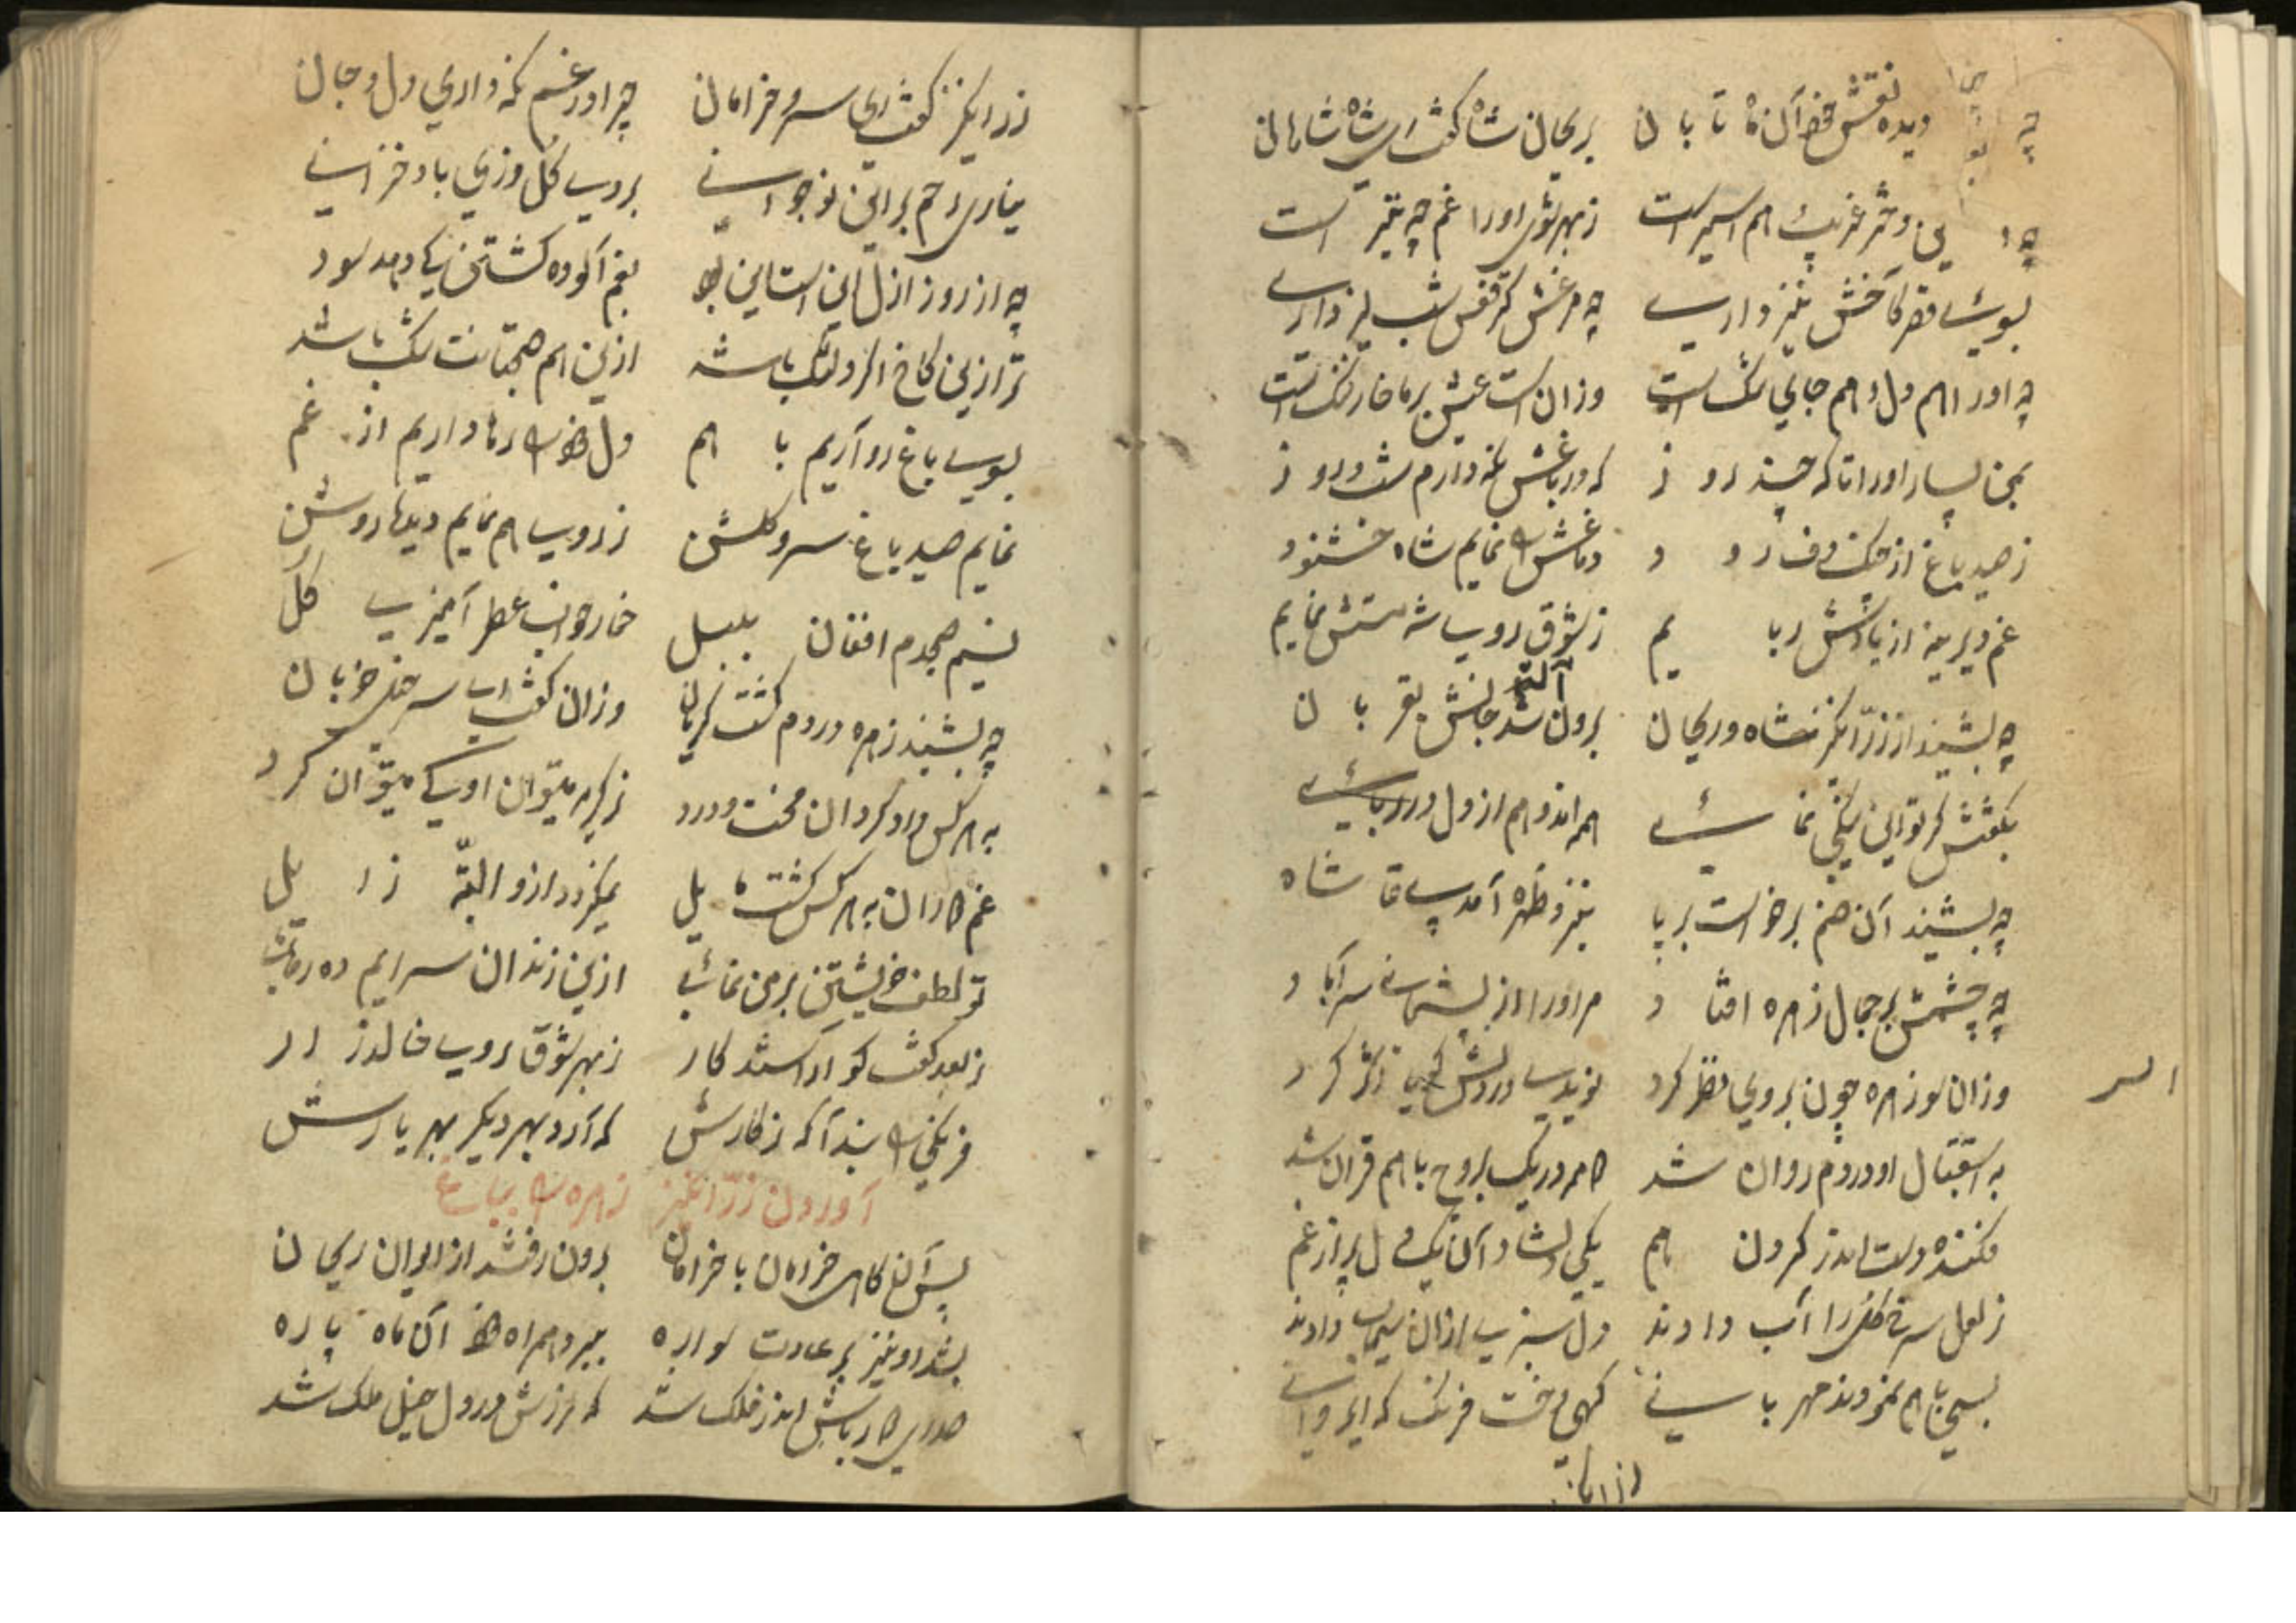 چه دیده نقش خط آن ماه تابان بریحان شاه گفت ای شاه شاهان
چه این دختر غریب هم اسیر است ز بهر توش او را غم چه تیر است
بسوی قصر کاخش نیز داری چه مرغش در قفس شب نیز داری
چه او را هم دل و هم جای تنگ است وزان است عیش بر ما خار و ننگ است
بمن بسپار او را تا که چند روز که در باغش نگه دارم شب و روز
ز صید باغ از جنگ و ف رود دماغش را نمایم شاه خشنود
غم دیرینه از یادش ربایم ز شوق روی شه مستش نمایم
چه بشنید از زرانگیز شاه ریحان برون شد آنگه جانش بقربان
بگفتش گر تو این نیکی نمائی همه اندوهم از دل در ربائی
چه بشنید آن صنم برخواست بر پا بنزد زهره آمد پی تماشاه
چه چشمش بر جمال زهره افتاد مر او را از پشیمانی سر آباد
وزان سو زهره چون بر وی نظر کرد نوید وی در دلش گویا گذر کرد
به استقبال او در دم روان شد دو مه در یک بروج با هم قران شد
فکنده دست اندر گردن هم یکی دلشاد آن یک دل پر از غم
ز لعل سرخ گل را آب دادند دل سنبل از آن سیماب دادند
بسی با هم نمودند مهربانی گهی دخت فرنگ که ایروانی
از ایران
زرانگیز گفت ای سرو خرامان چرا در غم نگه داری دل و جان
نیاری رحم بر این نوجوانی بروی گل وزی باد خزانی
چه از روز ازل این است این بود بغم آلوده گشتن نیک دمد سود
ترا زین کاخ اگر دلتنگ باشد ازین هم صحبتانت ننگ باشد
بسوی باغ رو آریم با هم دل خود را رها داریم از غم
نمایم صید باغ سرو گلشن ز روی هم نمایم دیدها روشن
نسیم صبحدم افغان بلبل خمار خواب عطر آمیزی گل
چه بشنید زهره در دم گشت گریان وزان گفت ای سر خیل خوبان
به هر کس داد گردان محنت و درد ز گریه میتوان او کی میتوان کرد
غم دوران به هر کس گشت مایل نمیگردد ازو البته زایل
تو لطف خویشتن بر من نمائی ازین زندان سرایم ده رهائی
ز بعد گفت کو آراستند کار ز بهر شوق روی خالد زار
فرنگی را ببند آ که ز کارش که آرد بهر دیگر بهر یارش
آوردن زرانگیز زهره را بباغ
پس آنگاهی خرامان با خرامان برون رفتند از ایوان ریحان
بشد او نیز بر عادت سواره ببرد همراه خود آن ماه پاره
صدای دور باش اندر فلک شد که لرزش در دل خیل ملک شد